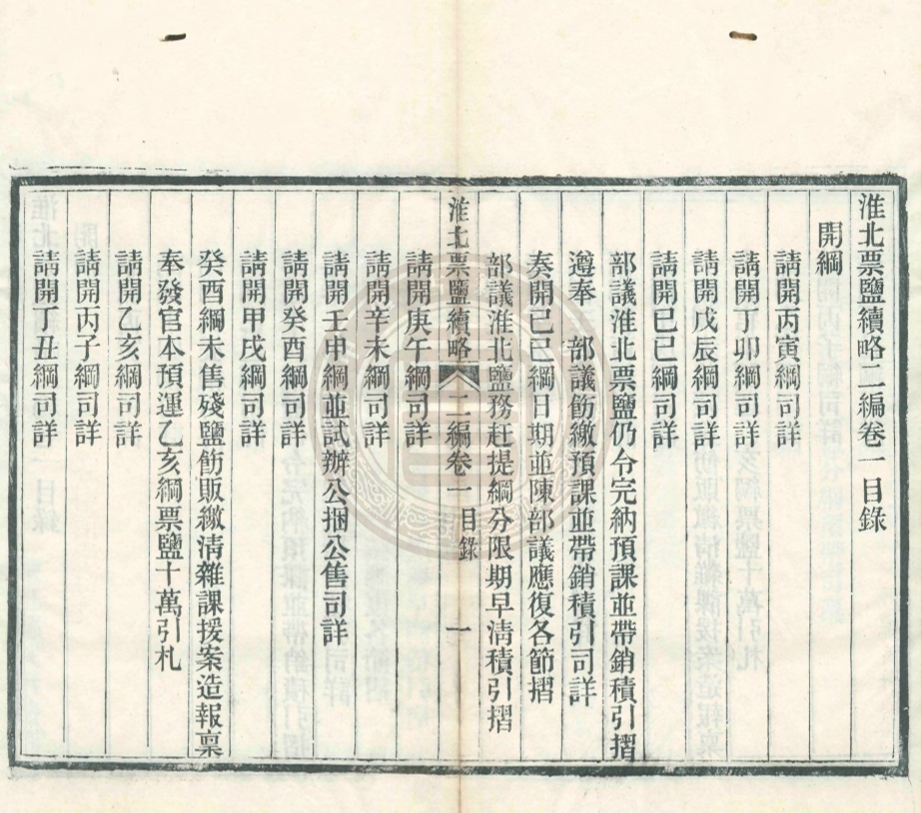 淮北票鹽續略二編卷一目錄
開綱
請開丙寅綱司詳
請開丁卯綱司詳
請開戊辰綱司詳
請開巳巳綱司詳
部議淮北票鹽仍令完納預課並帶銷積引摺
遵奉　部議飭繳預課並帶銷積引司詳
奏開巳巳綱日期並陳部議應復各節摺
部議淮北鹽務赶提綱分限期早淸積引摺
淮北票鹽續略　二編卷一　目錄　一
請開庚午綱司詳
請開辛未綱司詳
請開壬申綱並試辦公捆公售司詳
請開癸酉綱司詳
請開甲戌綱司詳
癸酉綱未售殘鹽飭販繳淸雜課援案造報稟
奉發官本預運乙亥綱票鹽十萬引札
請開乙亥綱司詳
請開丙子綱司詳
請開丁丑綱司詳